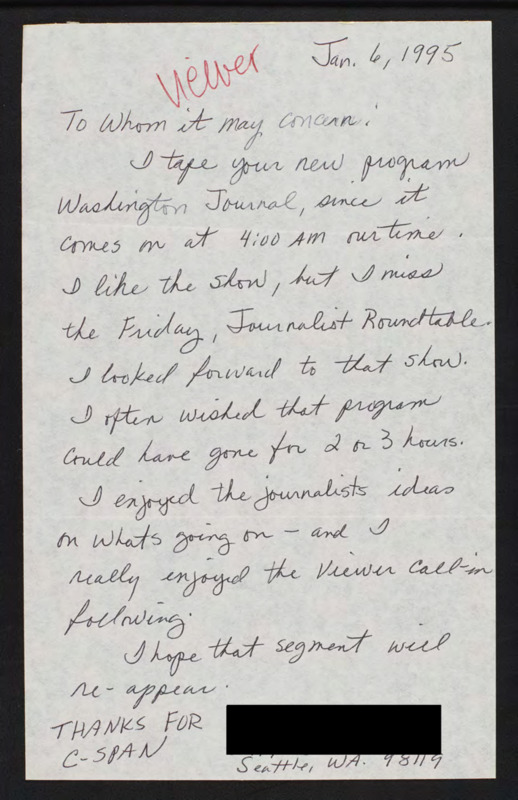 Viewer
Jan. 6, 1995
To Whom it may concern:
I tape your new program
Washington Journal, since it
comes on at 4:00 AM our time.
I like the show, but I miss
the Friday, Journalist Roundtable.
I looked forward to that show.
I often wished that program
could have gone for 2 or 3 hours.
I enjoyed the journalists ideas
on whats going on – and I
really enjoyed the Viewer Call-in
following.
I hope that segment will
re-appear.
THANKS FOR
C-SPAN
Seattle, WA. 98119